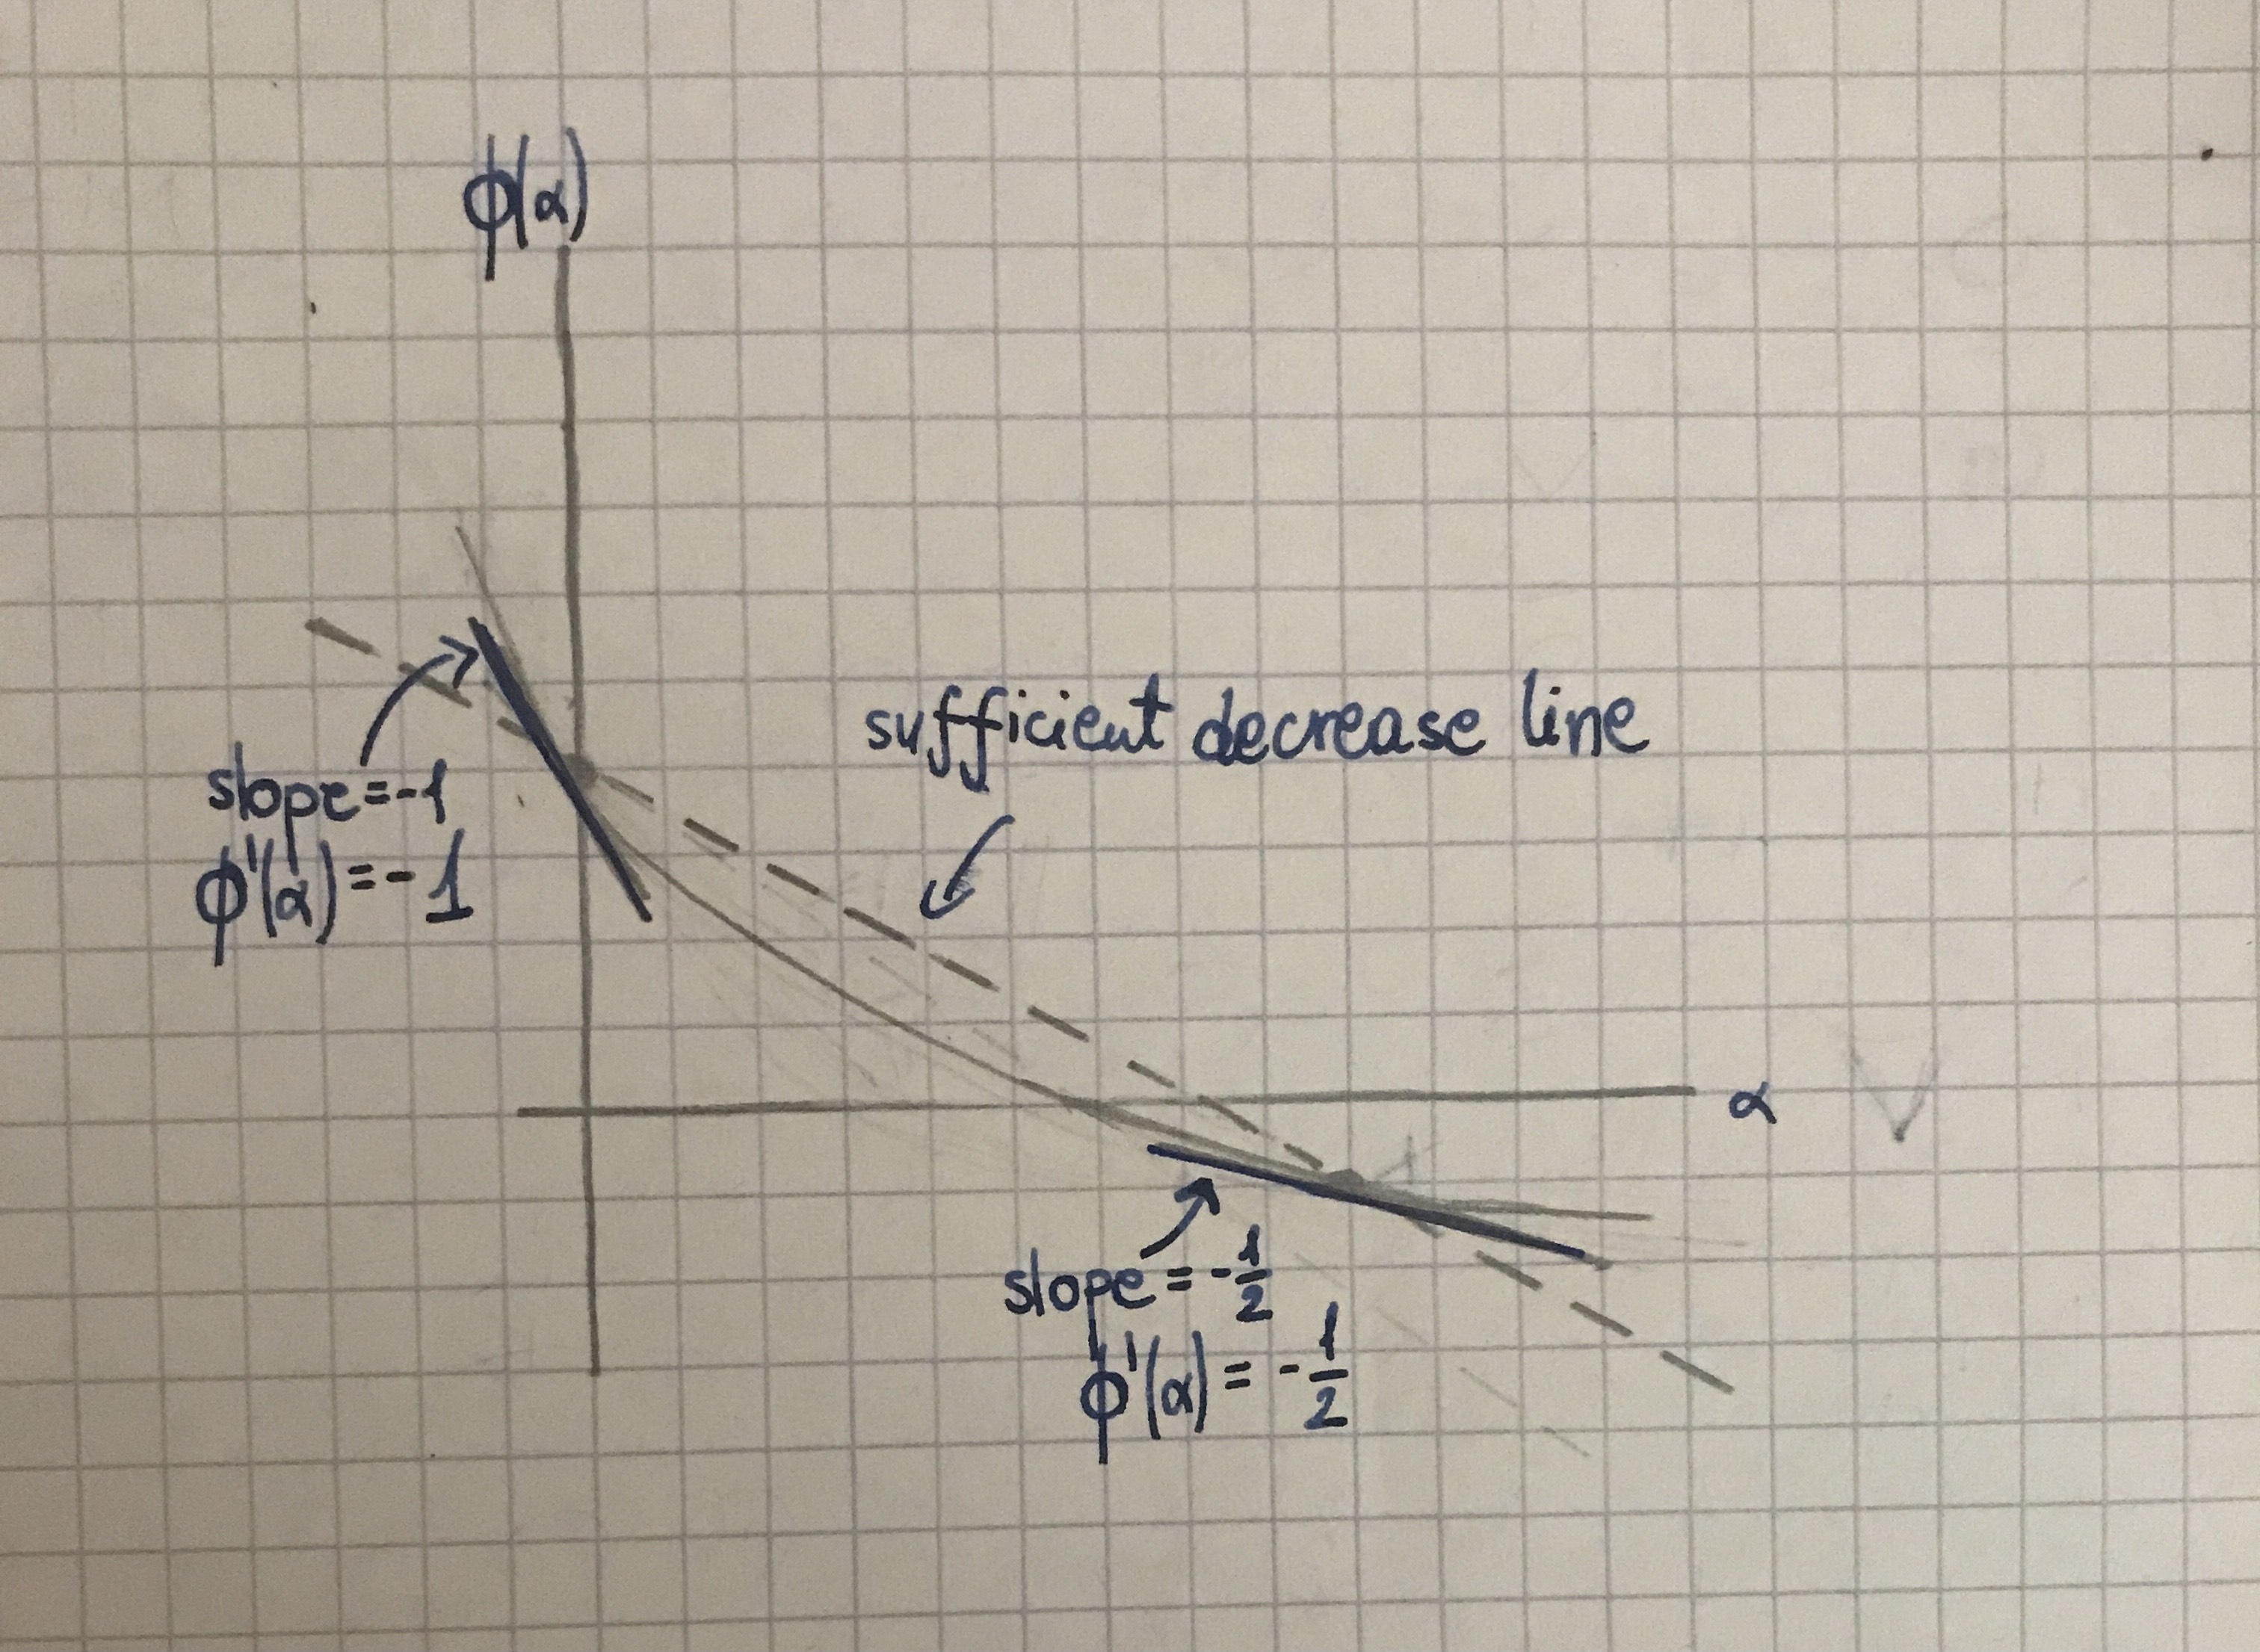 ϕ(α)
sufficient decrease line
slope=-1
ϕ'(α)=-1
α
slope=-1/2
ϕ'(α)=-1/2